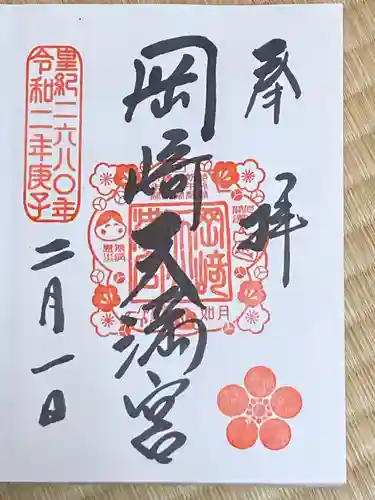 奉拝
岡崎天満宮
岡崎
皇紀二六八〇年
令和二年庚子
二月一日